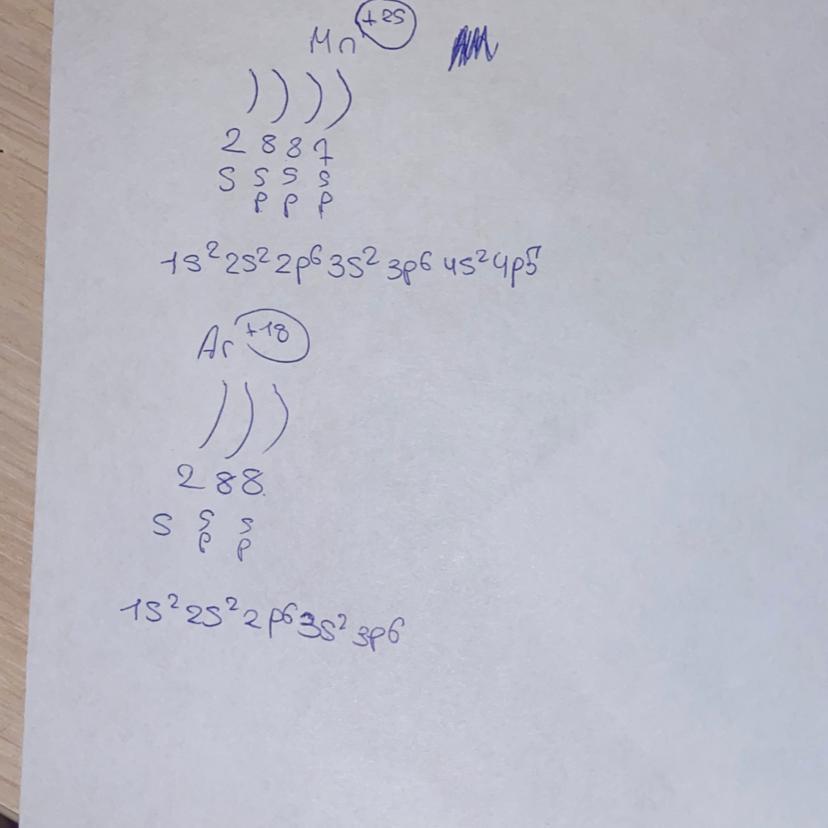 Mn +25
) ) ) )
2 8 8 7
S S S S
p p p
1s² 2s² 2p⁶ 3s² 3p⁶ 4s² 4p⁵
Ar +18
) ) )
2 8 8
S S S
p p
1s² 2s² 2p⁶ 3s² 3p⁶